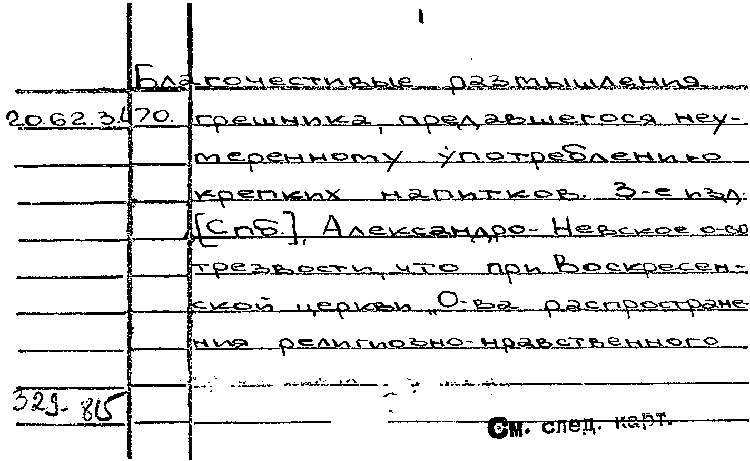 1
Благочестивые размышления
20.62.3.170. грешника, предавшегося неу-
меренному употреблению
крепких напитков. 3-е изд.
[Спб.], Александро-Невское о-во
трезвости, что при Воскресен-
ской церкви "О-ва распростране
ния религиозно-нравственного
329-815
См. след. карт.